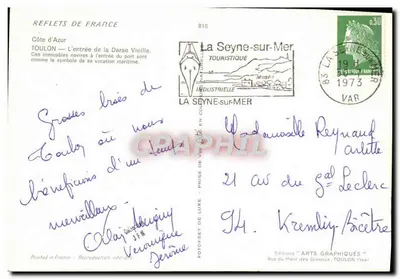 REFLETS DE FRANCE
Côte d'Azur
TOULON — L'entrée de la Darse Vieille.
Ces immeubles navires à l'entrée du port sont
comme le symbole de sa vocation maritime.
La Seyne-sur-Mer
TOURISTIQUE
INDUSTRIELLE
LA SEYNE-sur-MER
83 LA SEYNE-S-MER
19
1973
VAR
0,30
Grosses bises de
Toulon où nous
bénéficions d'un temps
merveilleux.
Véronique
Jérôme
Mademoiselle Reynaud
Arlette
21 av du Gal Leclerc
94. Kremlin-Bicêtre
CPAPHIL
Printed in France - Reproduction interdite
PHOTOCHROME DE LUXE
Editions "ARTS GRAPHIQUES"
TOULON (Var)